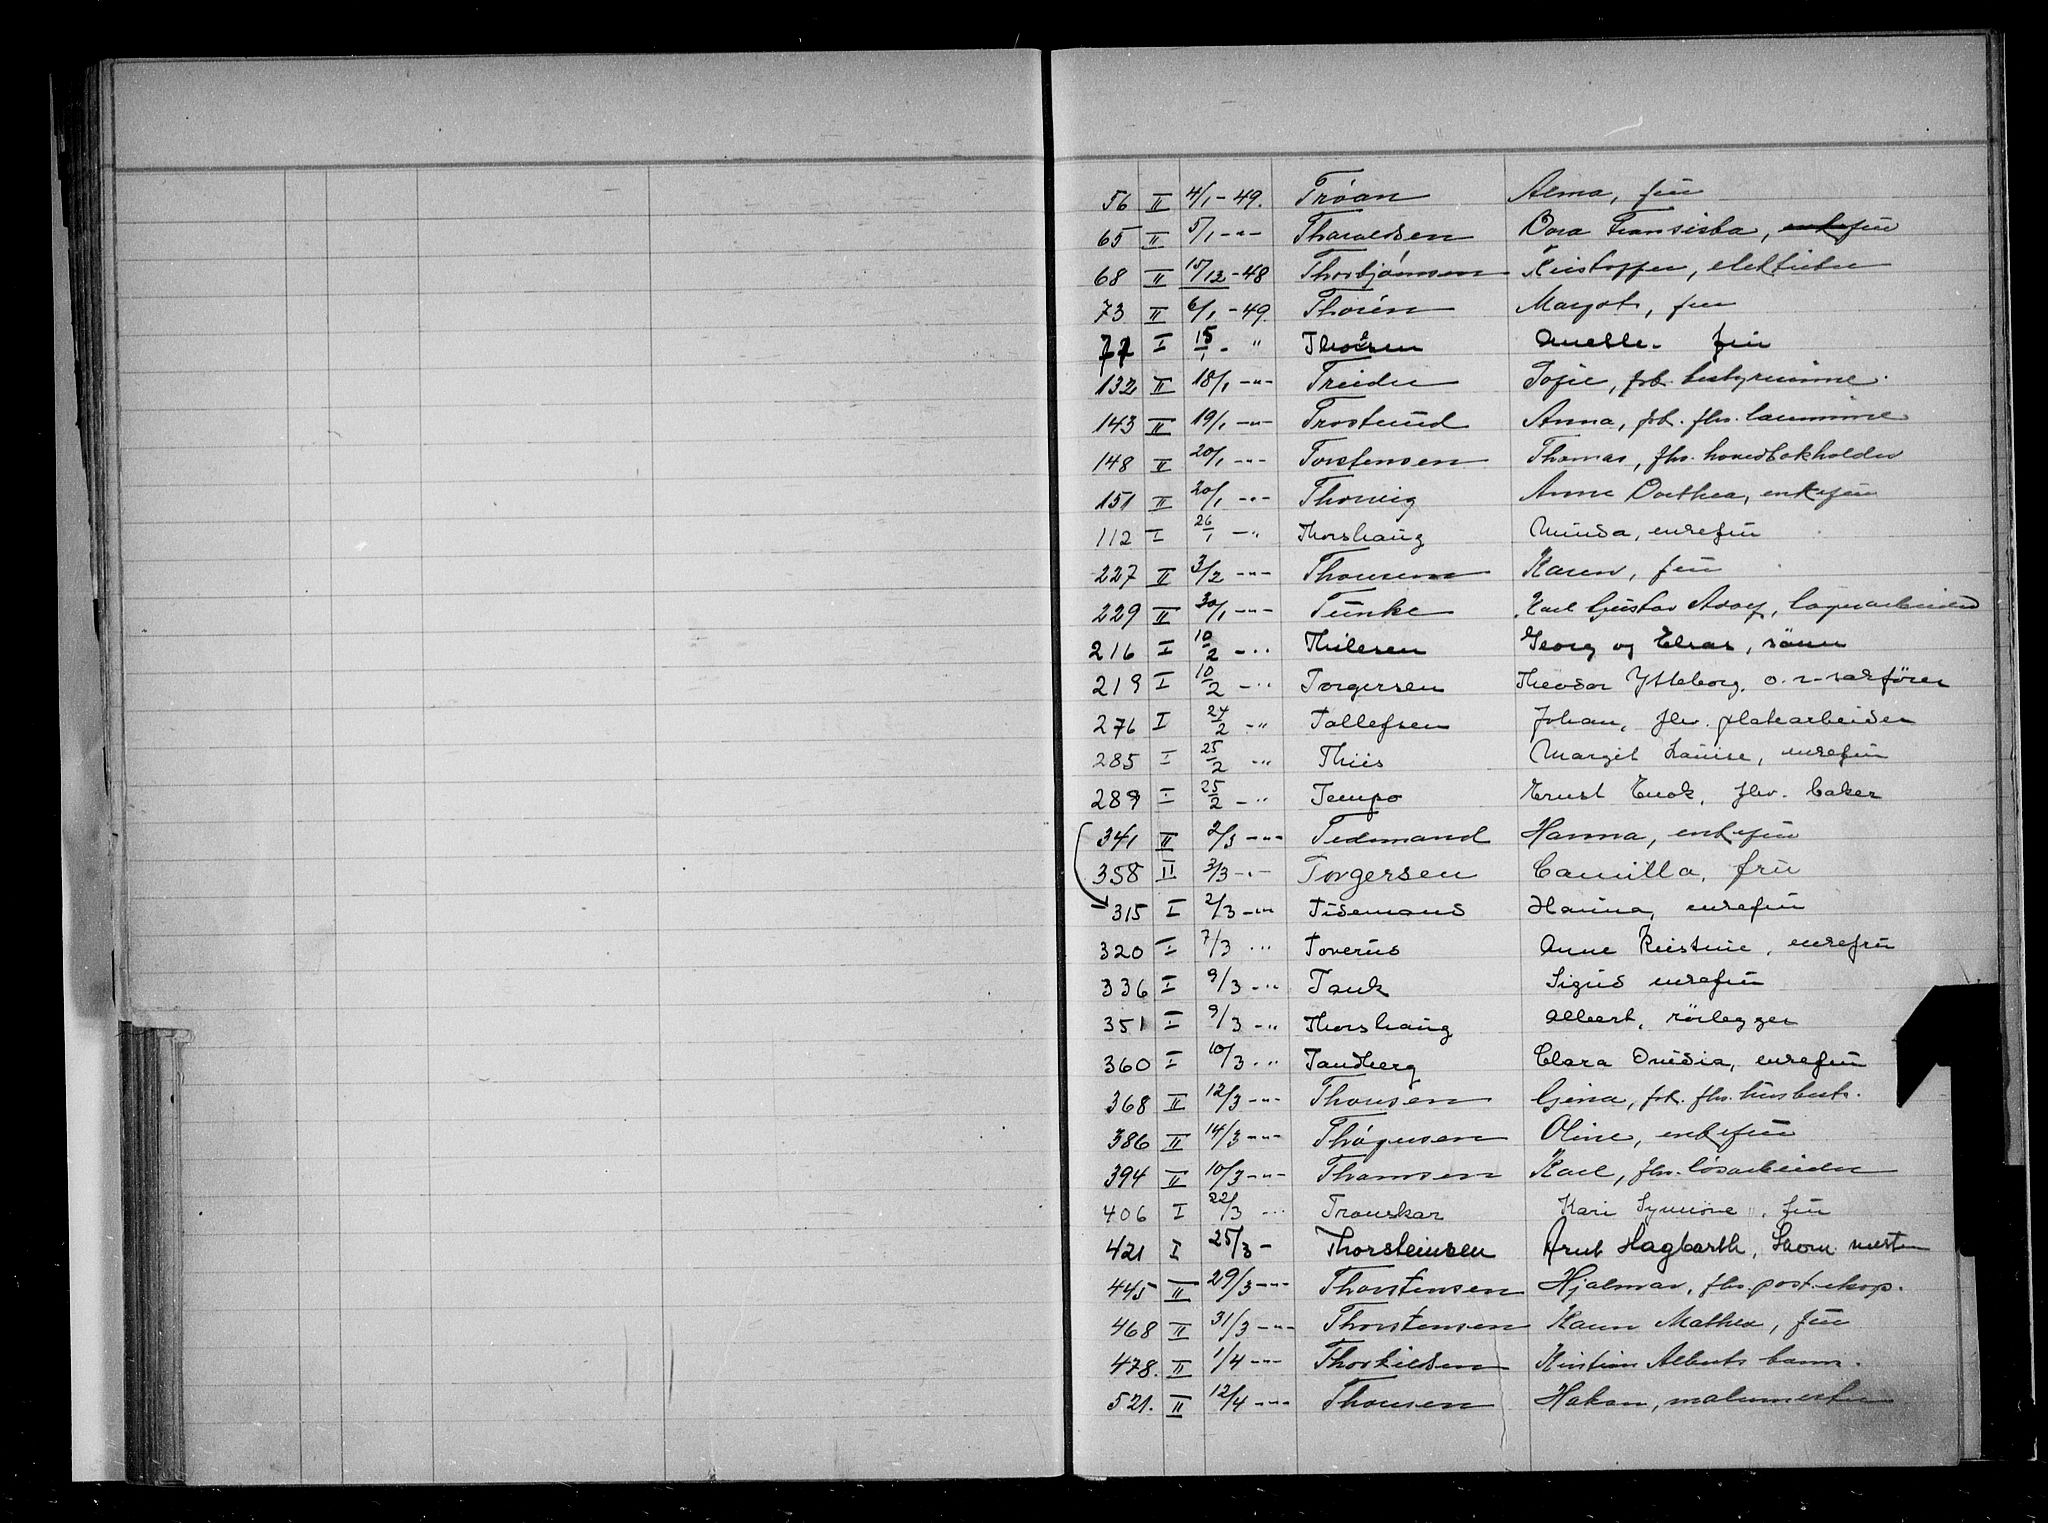 56 II 4/1-49. Trøan Alma, frü
65 II 5/1 -"- Tharaldsen Dora Fransiska, enkefrü
68 II 15/12-48 Thorbjørnsen Kristoffer, elektriker
73 II 6/1-49. Thorén Margot, frü
77 I 15/1 - " Anette. frü
132 II 18/1 -"- Treider Sofie, frk. bestyrerinne.
143 II 19/1 -"- Trostrüd Anna, frk. fhv. lærerinne
148 II 20/1 -"- Torstensen Thomas, fhv. hovedbokholder
151 II 20/1 -"- Thorvig Anne Dorthea, enkefrü
112 I 26/1 - " Thorshaug Minda, enkefrü
227 II 3/2 -"- Thorsen Karen, frü
229 II 30/1 -"- Tünke Karl Güstav Adolf, lagerarbeider
216 I 10/2 - " Thilesen Georg og Elsas, sönn
219 I 10/2 - " Torgersen Theodor Ytteborg, o.r-sakfører
276 I 24/2 - " Tollefsen Johan, fhv. platearbeider
285 I 25/2 " Thiis Margit Louise, enkefrü
289 I 25/2 - " Tempo Ernst Enok, fhv. baker
341 II 2/3 -"- Tidemand Hanna, enkefrü
358 II 3/3 -"- Torgersen Camilla, frü
315 I 2/3 -"- Tidemand Hanna, enkefrü
320 I 7/3 " Toverüd Anne Kristine, enkefrü
336 I 9/3 - " Tank Sigrid enkefrü
351 I 9/3 - " Thorshaug Albert, rörlegger
360 I 10/3 " Tandberg Clara Ovidia, enkefrü
368 II 12/3 -"- Thorsen Gina, frk. fhv. hüsbest.
386 II 14/3 -"- Thøgersen Oline, enkefrü
394 II 10/3 -"- Thomsen Karl, fhv. løsarbeider
406 I 22/3 " Tronskar Kari Synnöve, frü
421 I 25/3 - Thorsteinsen Arnt Hagbarth, Skom. mester
445 II 29/3 -"- Thorstensen Hjalmar, fhv. post.eksp.
468 II 31/3 -"- Thorstensen Karen Mathea, frü
478. II 1/4 -"- Thorkildsen Kristian Alberts barn.
521. II 12/4 -"- Thorsen Håkon, malermester